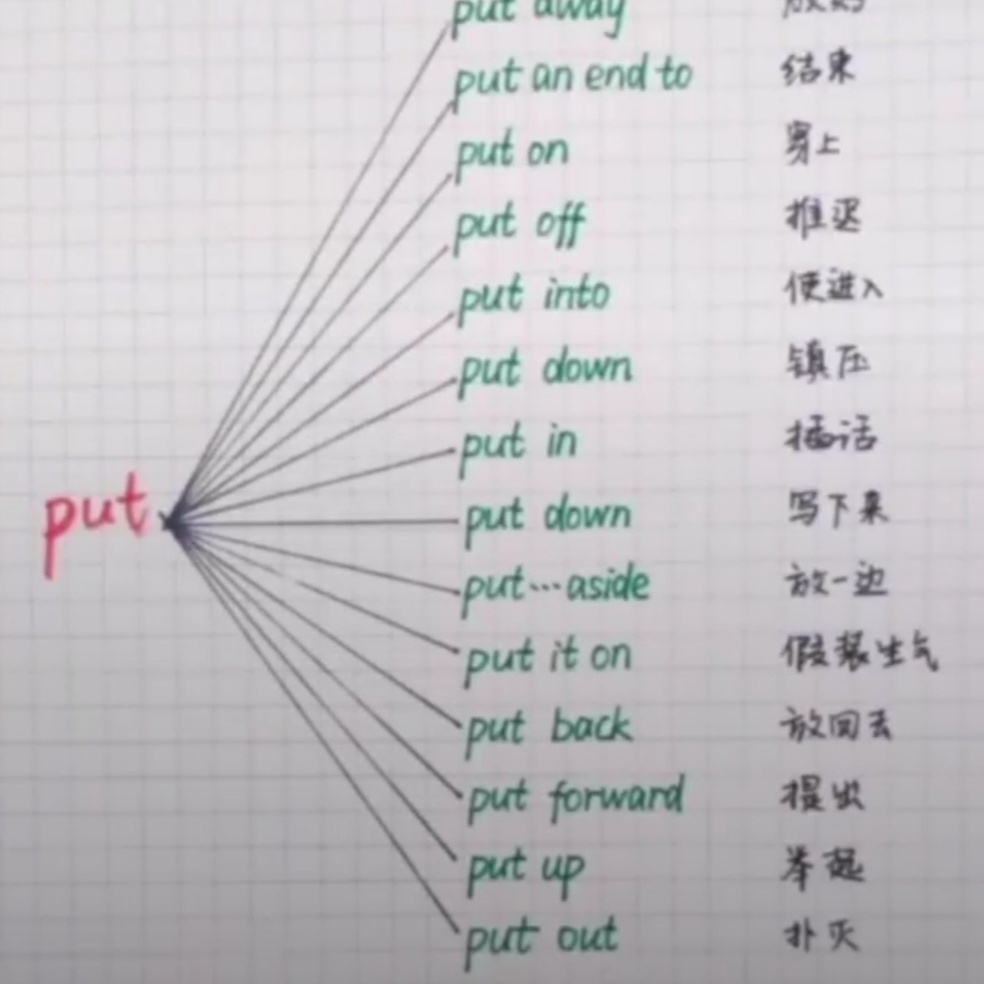 put away
put an end to 结束
put on 穿上
put off 推迟
put into 使进入
put down 镇压
put in 插话
put put down 写下来
put…aside 放一边
put it on 假装生气
put back 放回去
put forward 提出
put up 举起
put out 扑灭